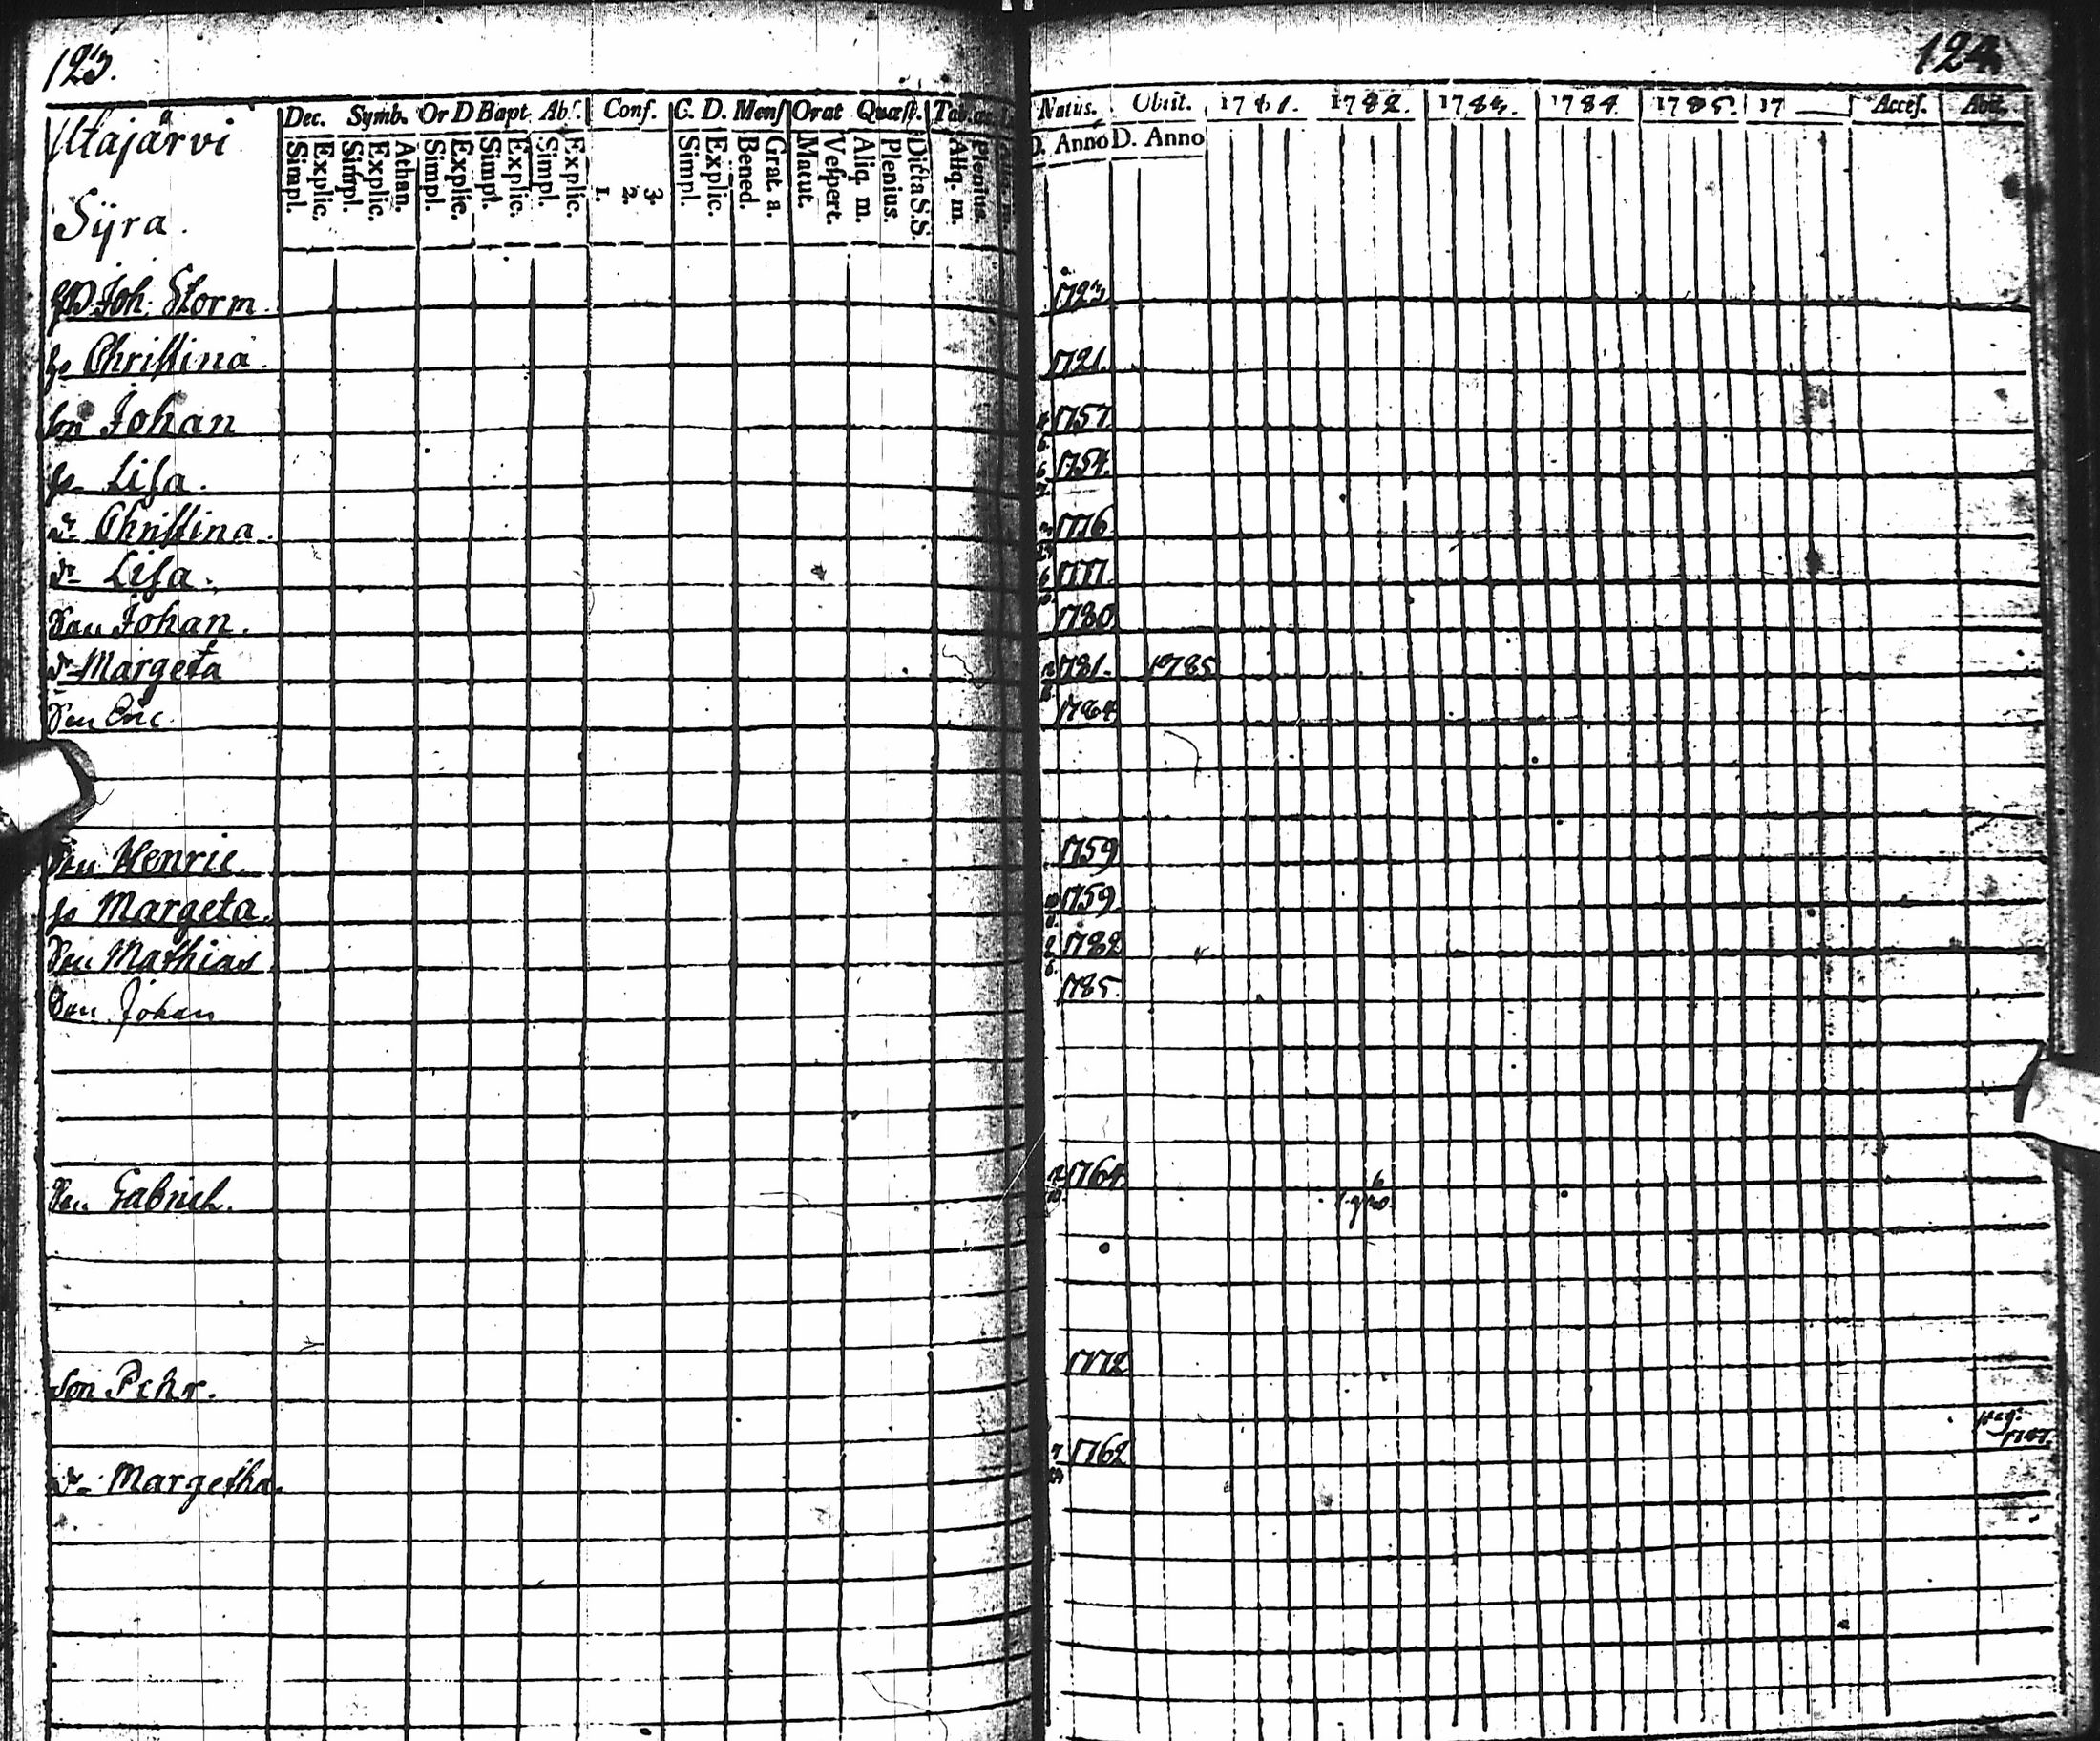 123.
124.
Utajärvi
Dec. Symb. Or D Bapt. Abs. Conf. C. D. Mens Orat Quæst. Tab. Natus. Obiit. 1781. 1782. 1783. 1784. 1785. 17 Acces. Abit.
Simpl. Explic. Simpl. Explic. Athan. Simpl. Explic. Simpl. Explic. Simpl. Explic. 1. 2. 3. Simpl. Explic. Bened. Grat. a. Matut. Vespert. Aliq. m. Plenius. Dicta S.S. Aliq. m. Plenius. D. Anno D. Anno
Sÿra.
Joh. Storm. 1723
hu Christina. 1721.
son Johan 1757
hu Lisa. 1754.
dr Christina. 1776
dr Lisa. 1777.
Son Johan. 1780
dr Margeta 1781. 1785
Son Eric. 1784
Son Henric. 1759
hu Margeta. 1759
Son Mathias 1782
Son Johan 1785.
Son Gabriel. 1764.
Son Pehr. 1772
dr Margetha. 1762